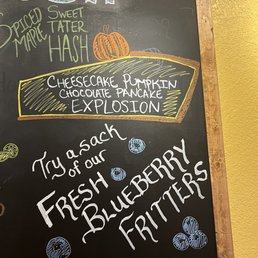 Spiced Sweet
Maple Tater
Hash
Cheesecake Pumpkin
Chocolate Pancake
Explosion
Try a sack
of our
Fresh
Blueberry
Fritters